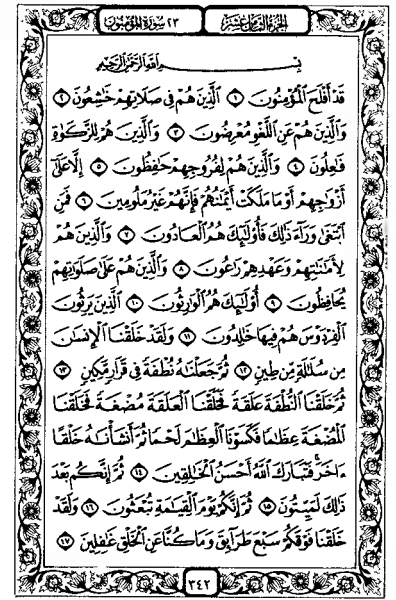 الجزء الثامن عشر ٢٣ سورة المؤمنون
بسم الله الرحمن الرحيم
قَدْ أَفْلَحَ ٱلْمُؤْمِنُونَ ۝١ ٱلَّذِينَ هُمْ فِى صَلَاتِهِمْ خَٰشِعُونَ ۝٢
وَٱلَّذِينَ هُمْ عَنِ ٱللَّغْوِ مُعْرِضُونَ ۝٣ وَٱلَّذِينَ هُمْ لِلزَّكَوٰةِ
فَٰعِلُونَ ۝٤ وَٱلَّذِينَ هُمْ لِفُرُوجِهِمْ حَٰفِظُونَ ۝٥ إِلَّا عَلَىٰٓ
أَزْوَٰجِهِمْ أَوْ مَا مَلَكَتْ أَيْمَٰنُهُمْ فَإِنَّهُمْ غَيْرُ مَلُومِينَ ۝٦ فَمَنِ
ٱبْتَغَىٰ وَرَآءَ ذَٰلِكَ فَأُو۟لَٰٓئِكَ هُمُ ٱلْعَادُونَ ۝٧ وَٱلَّذِينَ هُمْ
لِأَمَٰنَٰتِهِمْ وَعَهْدِهِمْ رَٰعُونَ ۝٨ وَٱلَّذِينَ هُمْ عَلَىٰ صَلَوَٰتِهِمْ
يُحَافِظُونَ ۝٩ أُو۟لَٰٓئِكَ هُمُ ٱلْوَٰرِثُونَ ۝١٠ ٱلَّذِينَ يَرِثُونَ
ٱلْفِرْدَوْسَ هُمْ فِيهَا خَٰلِدُونَ ۝١١ وَلَقَدْ خَلَقْنَا ٱلْإِنسَٰنَ
مِن سُلَٰلَةٍ مِّن طِينٍ ۝١٢ ثُمَّ جَعَلْنَٰهُ نُطْفَةً فِى قَرَارٍ مَّكِينٍ ۝١٣
ثُمَّ خَلَقْنَا ٱلنُّطْفَةَ عَلَقَةً فَخَلَقْنَا ٱلْعَلَقَةَ مُضْغَةً فَخَلَقْنَا
ٱلْمُضْغَةَ عِظَٰمًا فَكَسَوْنَا ٱلْعِظَٰمَ لَحْمًا ثُمَّ أَنشَأْنَٰهُ خَلْقًا
ءَاخَرَ ۚ فَتَبَارَكَ ٱللَّهُ أَحْسَنُ ٱلْخَٰلِقِينَ ۝١٤ ثُمَّ إِنَّكُم بَعْدَ
ذَٰلِكَ لَمَيِّتُونَ ۝١٥ ثُمَّ إِنَّكُمْ يَوْمَ ٱلْقِيَٰمَةِ تُبْعَثُونَ ۝١٦ وَلَقَدْ
خَلَقْنَا فَوْقَكُمْ سَبْعَ طَرَآئِقَ وَمَا كُنَّا عَنِ ٱلْخَلْقِ غَٰفِلِينَ ۝١٧
٣٤٢